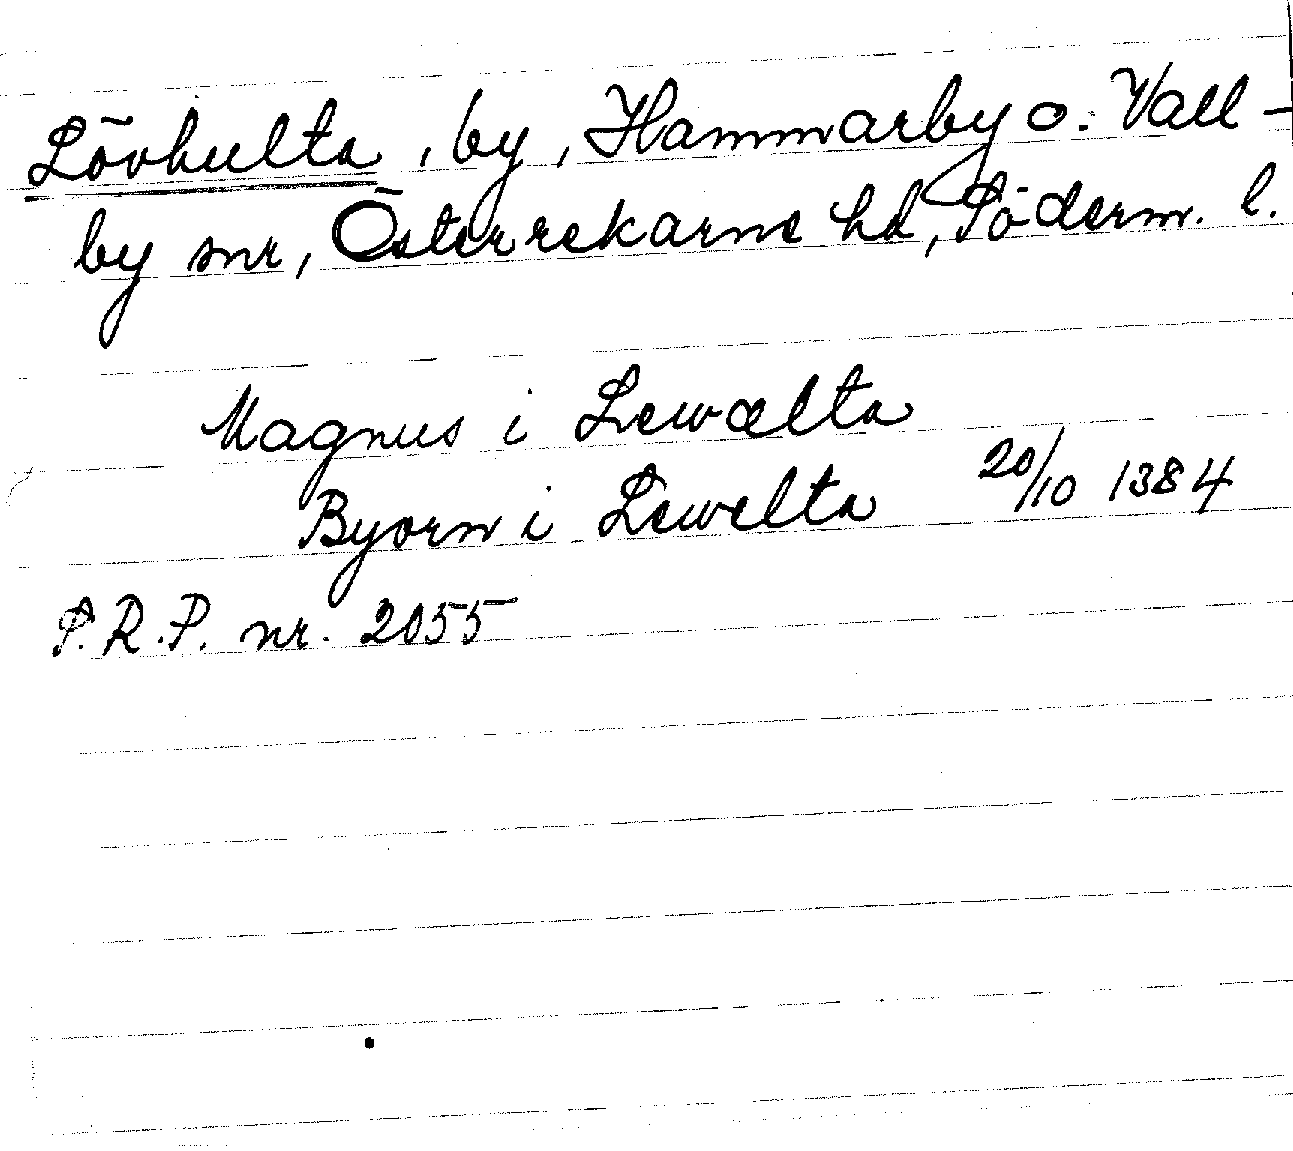 Lövhulta, by, Hammarby o. Vall-
by snr, Österrekarne hd, Söderm. l.
Magnus i Lewælta
Byorn i Lewelta 20/10 1384
S.R.P. nr. 2055